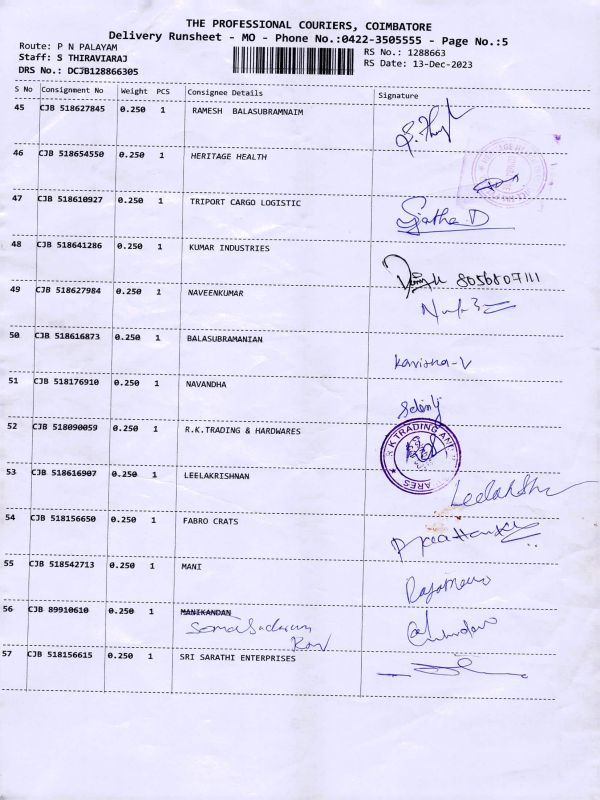 THE PROFESSIONAL COURIERS, COIMBATORE
Delivery Runsheet - MO - Phone No.:0422-3505555 - Page No.:5
Route: P N PALAYAM
RS No.: 1288663
Staff: S THIRAVIARAJ
RS Date: 13-Dec-2023
DRS No.: DCJB128866305
S No Consignment No Weight PCS Consignee Details Signature
45 CJB 518627845 0.250 1 RAMESH BALASUBRAMNAIM
46 CJB 518654550 0.250 1 HERITAGE HEALTH
47 CJB 518610927 0.250 1 TRIPORT CARGO LOGISTIC
48 CJB 518641286 0.250 1 KUMAR INDUSTRIES
8056807111
49 CJB 518627984 0.250 1 NAVEENKUMAR
50 CJB 518616873 0.250 1 BALASUBRAMANIAN
Kavisha-V
51 CJB 518176910 0.250 1 NAVANDHA
52 CJB 518090059 0.250 1 R.K.TRADING & HARDWARES
53 CJB 518616907 0.250 1 LEELAKRISHNAN
54 CJB 518156650 0.250 1 FABRO CRATS
55 CJB 518542713 0.250 1 MANI
56 CJB 89910610 0.250 1 MANIKANDAN
57 CJB 518156615 0.250 1 SRI SARATHI ENTERPRISES